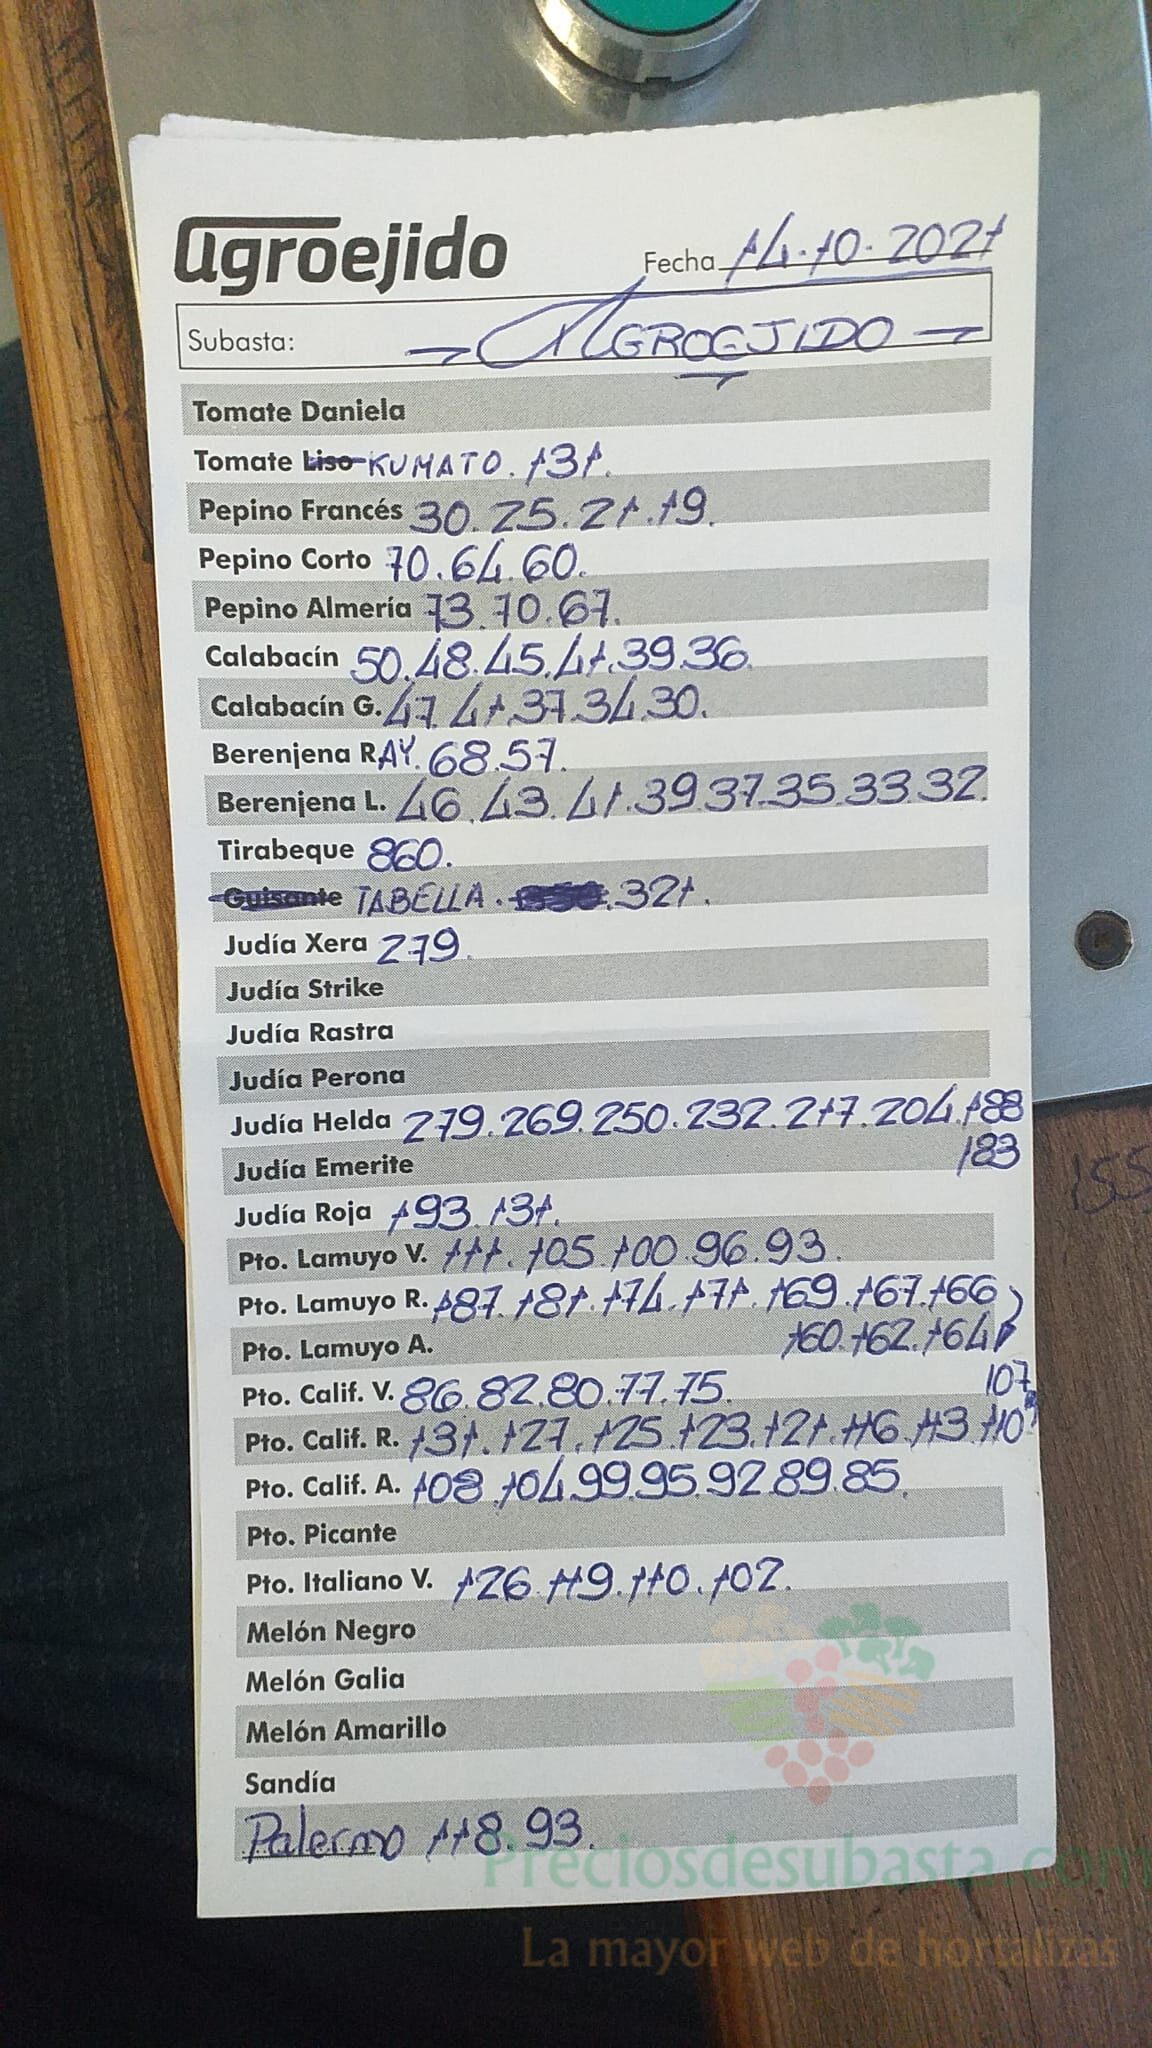 agroejido
Fecha 14.10.2021
Subasta: AGROEJIDO
Tomate Daniela
Tomate Liso KUMATO. 131.
Pepino Francés 30.25.21.19.
Pepino Corto 70.64.60.
Pepino Almería 73.70.67.
Calabacín 50.48.45.41.39.36.
Calabacín G. 47.41.37.34.30.
Berenjena RAY. 68.57.
Berenjena L. 46.43.41.39.37.35.33.32.
Tirabeque 860.
Guisante TABELLA. .321.
Judía Xera 279.
Judía Strike
Judía Rastra
Judía Perona
Judía Helda 279.269.250.232.217.204.188
183
Judía Emerite
155
Judía Roja 193.131.
Pto. Lamuyo V. 111.105.100.96.93.
Pto. Lamuyo R. 187.181.174.171.169.167.166
Pto. Lamuyo A. 160.162.164
Pto. Calif. V. 86.82.80.77.75.
107
Pto. Calif. R. 131.127.125.123.121.116.113.110
Pto. Calif. A. 108.104.99.95.92.89.85.
Pto. Picante
Pto. Italiano V. 126.119.110.102.
Melón Negro
Melón Galia
Melón Amarillo
Sandía
Palermo 118.93.
Preciosdesubasta.com
La mayor web de hortalizas